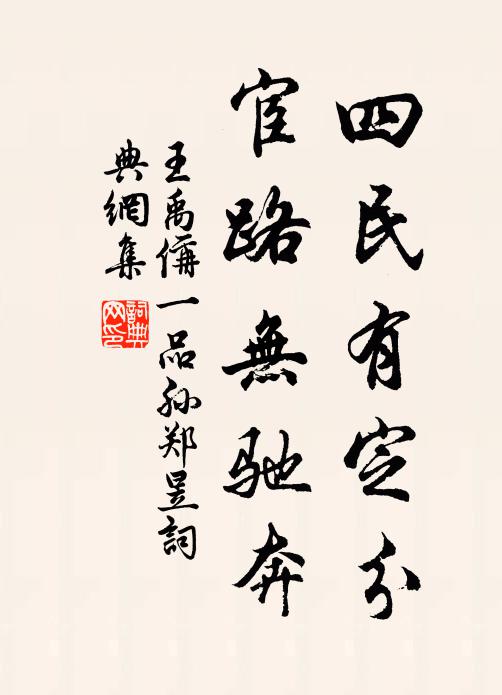 四民有定分
宦路無馳奔
王禹偁一品孙郑昱詞
典網集
詞典
网印